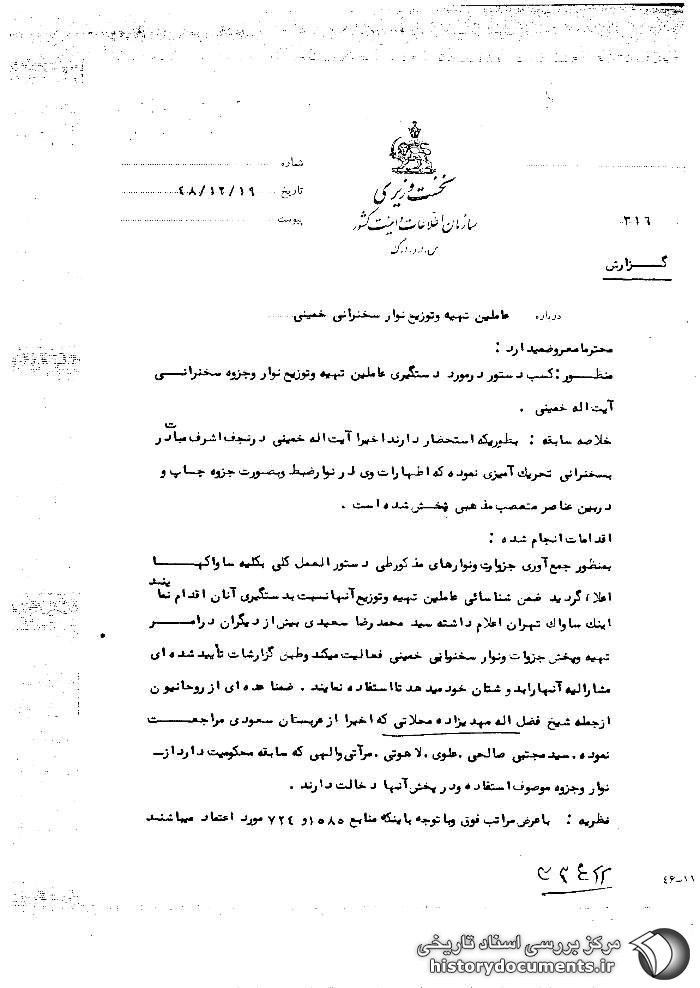 شماره
نخست وزیری
تاریخ ۴۸/۱۲/۱۹
سازمان اطلاعات و امنیت کشور
پیوست
۳۱۶
س.ا.و.ا.ک
گـــزارش
درباره عاملین تهیه وتوزیع نوار سخنرانی خمینی
محترما معروضمیدارد :
منظــور : کسب دستور درمورد دستگیری عاملین تهیه وتوزیع نوار وجزوه سخنرانــی
آیت اله خمینی .
خلاصه سابقه : بطوریکه استحضار دارند اخیرا آیت اله خمینی درنجف اشرف مبادرت
بسخنرانی تحریک آمیزی نموده که اظهارات وی در نوار ضبط وبصورت جزوه چاپ و
دربین عناصر متعصب مذهبی پخش شده است .
اقدامات انجام شده :
بمنظور جمع آوری جزوات ونوارهای مذکور طی دستور العمل کلی بکلیه ساواکهـــا
اعلام گردید ضمن شناسائی عاملین تهیه وتوزیع آنها نسبت بدستگیری آنان اقدام نمایند
اینک ساواک تهران اعلام داشته سید محمد رضا سعیدی بیش از دیگران در امــر
تهیه وپخش جزوات ونوار سخنرانی خمینی فعالیت میکند وطبق گزارشات تأیید شده ای
مشارالیه آنها را بدوشتان خود میدهد تا استفاده نمایند . ضمنا عده ای از روحانیون
ازجمله شیخ فضل اله مهدیزاده محلاتی که اخیرا از عربستان سعودی مراجعــت
نموده . سید مجتبی صالحی . علوی . لاهوتی . مرآتی والهی که سابقه محکومیت دارد ازـ
نوار وجزوه موصوف استفاده ودر پخش آنها دخالت دارند .
نظریه : باعرض مراتب فوق وبا توجه باینکه منابع ۱۵۸۵ و ۷۲۴ مورد اعتماد میباشند
۴۶-۱۱
مرکز بررسی اسناد تاریخی
historydocuments.ir